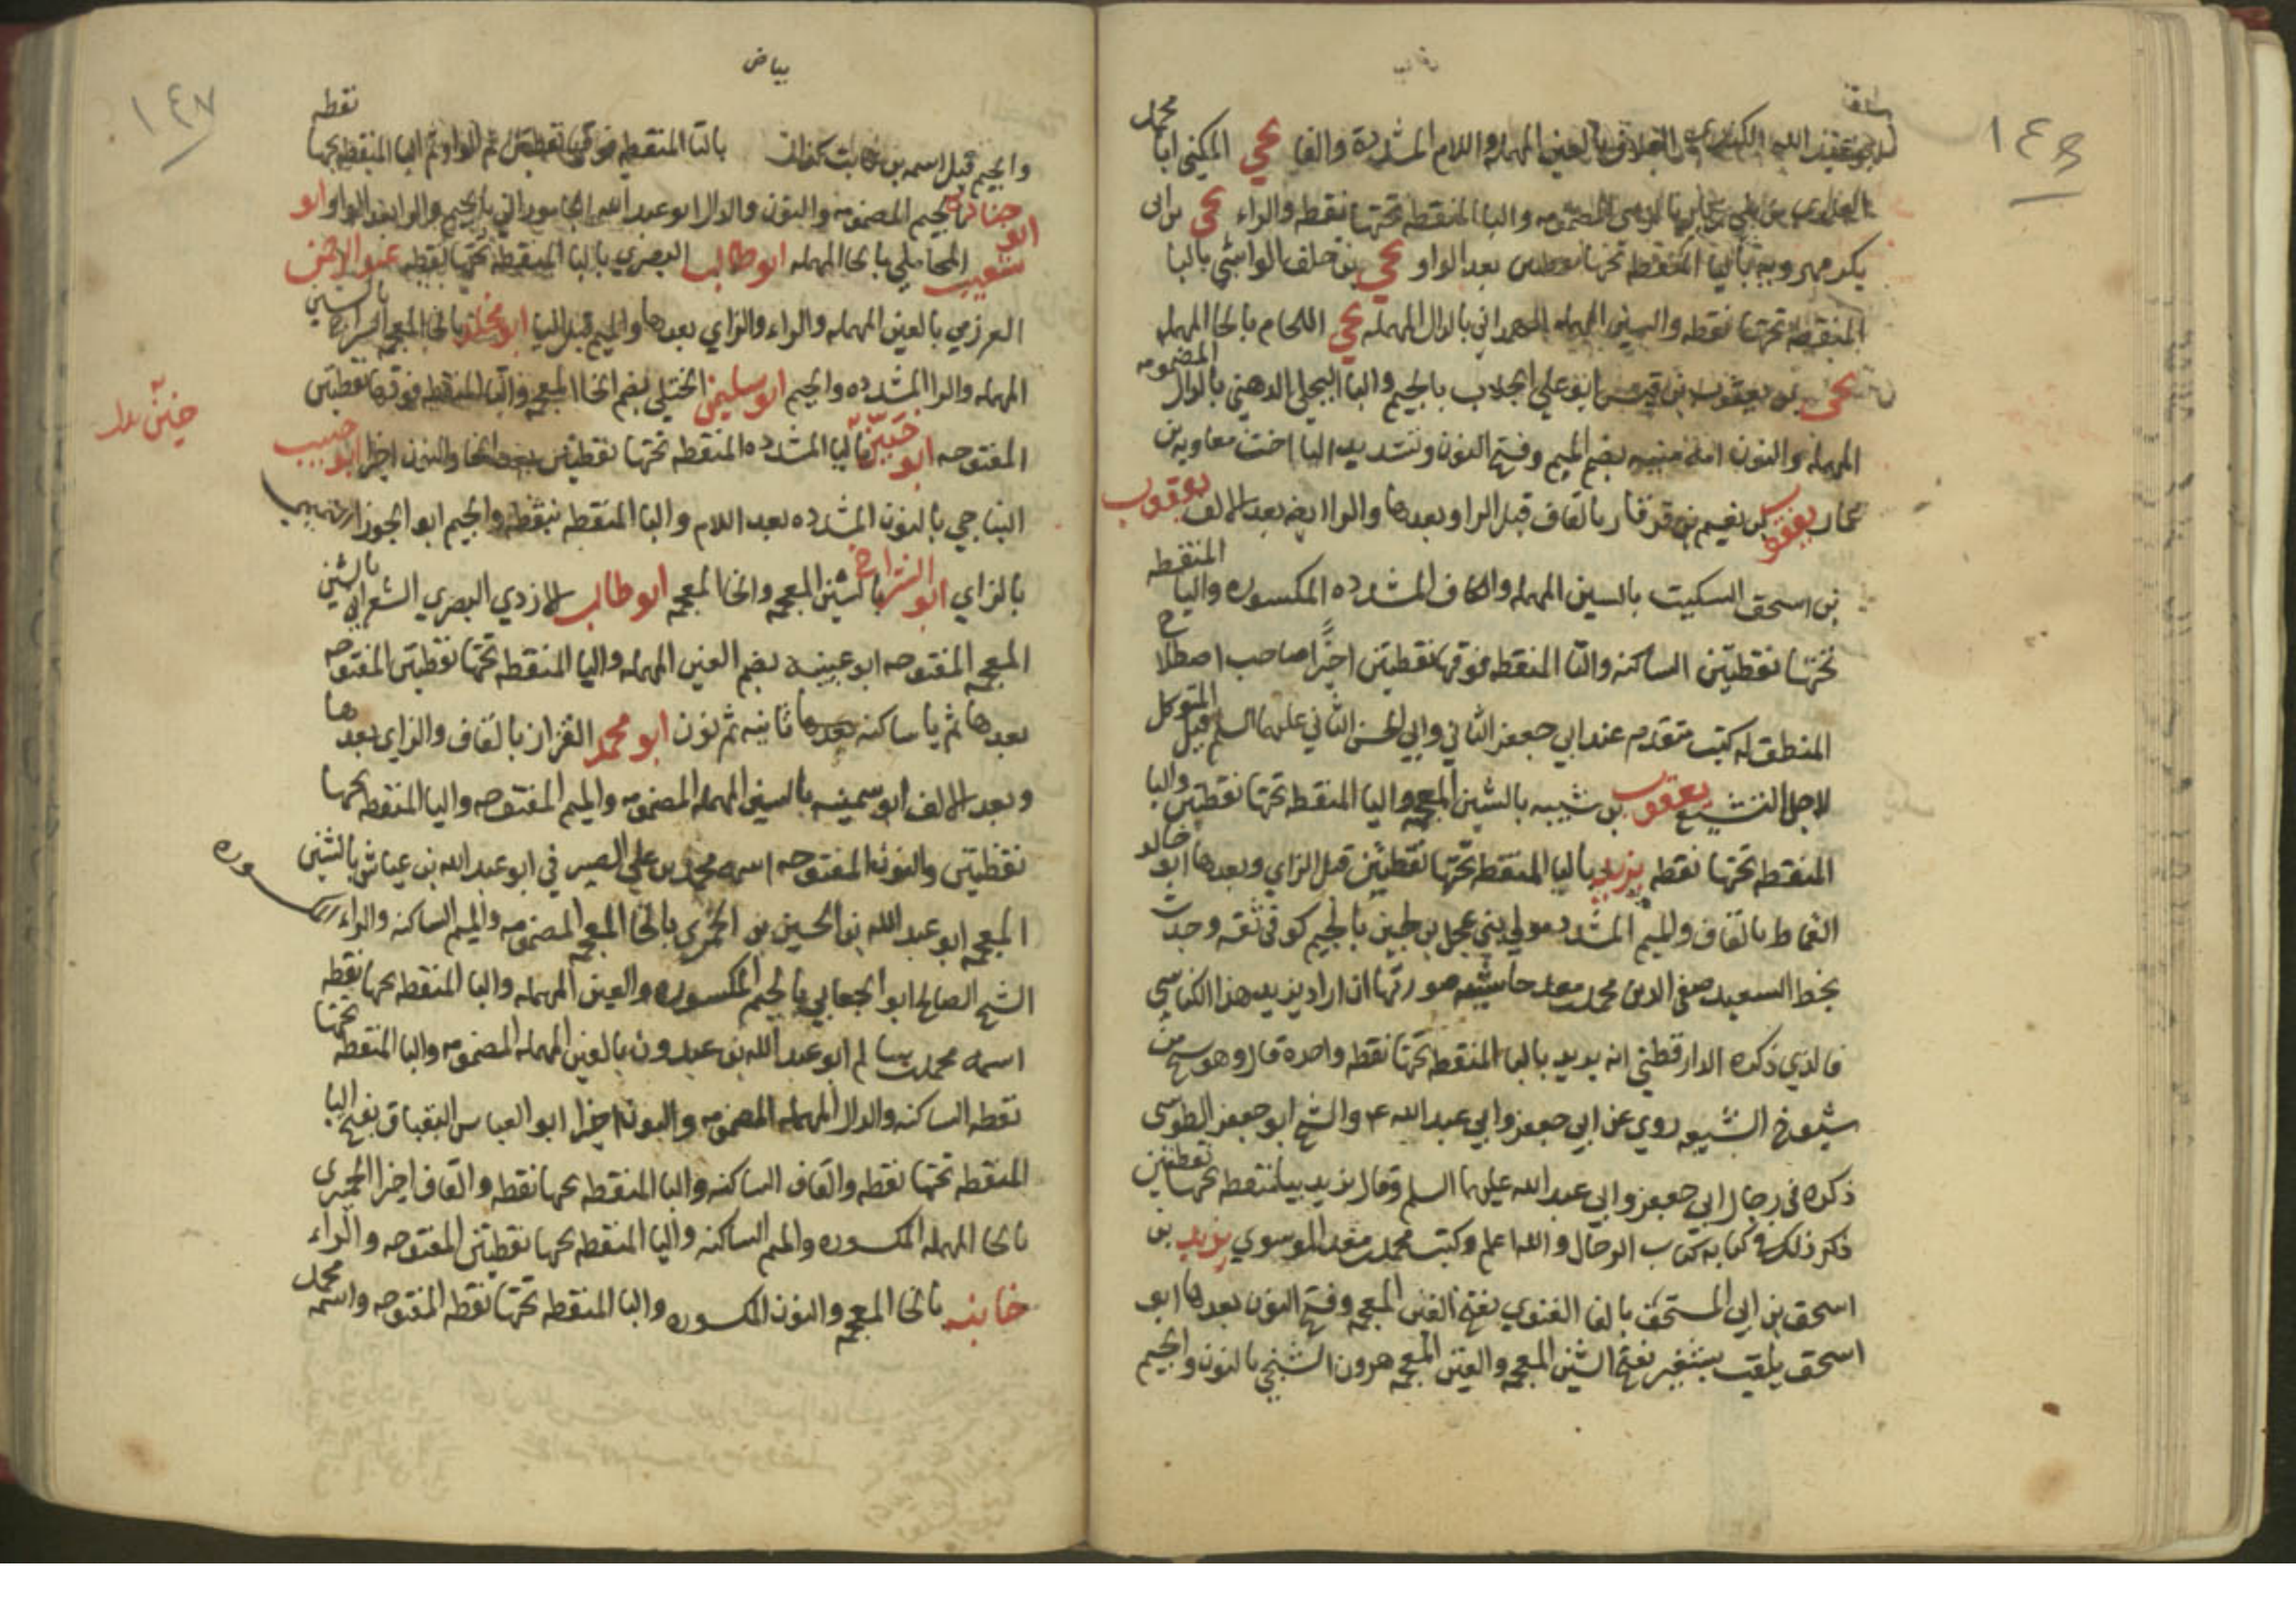 ١٤٦
العلاف بالعين المهمله واللام المشدده والفا يحيى المكنى ابا محمد
العلوي من بني المضمومه والبا المنقطه تحتها نقطه والراء يحيى بن ابى
بكر مهرويه باليا المنقطه تحتها نقطتين بعد الواو يحيى بن خلف الوابشي بالبا
المنقطه تحتها نقطه والسين المهمله الهمداني بالدال المهمله يحيى اللحام بالحا المهمله
يحيى بن يعقوب بن قيس ابو علي الجلاب بالجيم والبا البجلي الدهني بالدال المضمومه
المهمله والنون امه منيه بضم الميم وفتح النون وتشديد اليا اخت معاويه بن
عمار يعقوب بن نعيم بن قرقاره بالقاف قبل الراء وبعدها والراء ايضا بعد الالف يعقوب
بن اسحق السكيت بالسين المهمله والكاف المشدده المكسوره واليا المنقطه
تحتها نقطتين الساكنه والتا المنقطه فوقها نقطتين اخيرا صاحب اصطلاح
المنطق له كتب متقدم عند ابي جعفر الثاني وابي الحسن الثاني عليهما السلم قتل المتوكل
لاجل التشيع يعقوب بن شيبه بالشين المعجمه واليا المنقطه تحتها نقطتين والبا
المنقطه تحتها نقطه يزيد باليا المنقطه تحتها نقطتين قبل الزاي وبعدها ابو خالد
القماط بالقاف والميم المشدد مولى بني عجل بن لجين بالجيم كوفي ثقه وجدت
بخط السعيد صفي الدين محمد بن معد حاشيه صورتها ان اراد يزيد هذا الكناسي
فالذي ذكره الدارقطني انه بريد بالبا المنقطه تحتها نقطه واحدة قال وهو شيخ من
شيوخ الشيعه روى عن ابي جعفر وابي عبد الله ع والشيخ ابو جعفر الطوسي
ذكره في رجال ابي جعفر وابي عبد الله عليهما السلم وقال يزيد بيا منقطه تحتها نقطتين
ذكر ذلك في كتابه كتاب الرجال والله اعلم وكتب محمد بن معد الموسوي يزيد بن
اسحق بن ابى السخف بالفا الغنوي بفتح الغين المعجمه وفتح النون بعدها ابو
اسحق يلقب بشغر بفتح الشين المعجمه والغين المعجمه هرون الشنجي بالنون والجيم
بياض
١٤٧
والجيم قيل اسمه بن ثابت كندان بالتا المنقطه فوقها نقطتين ثم الواو ثم اليا المنقطه تحتها نقطه
جناده بالجيم المضمومه والنون والدال ابو عبد الله الجاموراني بالجيم والراء بعد الواو ابو
ابو شعيب المحاملي بالحا المهمله ابو طالب البصري بالبا المنقطه تحتها نقطه عبد الرحمن
العرزمي بالعين المهمله والراء والزاي بعدها والميم قبل اليا ابو مخلد بالخا المعجمه السراج بالسين
المهمله والرا المشدده والجيم ابو سليمن الختلي بضم الخا المعجمه والتا المنقطه فوقها نقطتين
المفتوحه ابو خيّن باليا المشدده المنقطه تحتها نقطتين بعد الخا والنون اخيرا ابو حبيب
خيّن بدل
النباجي بالنون المشدده بعد اللام والبا المنقطه بنقطه والجيم ابو الجوزا التميمي
بالزاي ابو الشداخ بالشين المعجمه والخا المعجمه ابو طالب الازدي البصري الشعراني بالشين
المعجمه المفتوحه ابو عيينه بضم العين المهمله واليا المنقطه تحتها نقطتين المفتوحه
بعدها ثم يا ساكنه بعدها ثانيه ثم نون ابو محمد القزاز بالقاف والزاي بعدها
وبعد الالف ابو سمينه بالسين المهمله المضمومه والميم المفتوحه واليا المنقطه تحتها
نقطتين والنون المفتوحه اسمه محمد بن علي الصيرفي ابو عبد الله بن عياش بالشين
المعجمه ابو عبد الله بن الحسين بن الخمري بالخا المعجمه المضمومه والميم الساكنه والراء المكسوره
الشيخ الصالح ابو الجعابي بالجيم المكسوره والعين المهمله والبا المنقطه تحتها نقطه
اسمه محمد بن سالم ابو عبد الله بن عبدون بالعين المهمله المضمومه والبا المنقطه تحتها
نقطه الساكنه والدال المهمله المضمومه والنون اخيرا ابو العباس البقباق بفتح البا
المنقطه تحتها نقطه والقاف الساكنه والبا المنقطه تحتها نقطه والقاف اخيرا الحميرى
بالحا المهمله المكسوره والميم الساكنه واليا المنقطه تحتها نقطتين المفتوحه والراء
خانبه بالخا المعجمه والنون المكسوره والبا المنقطه تحتها نقطه المفتوحه واسمه محمد